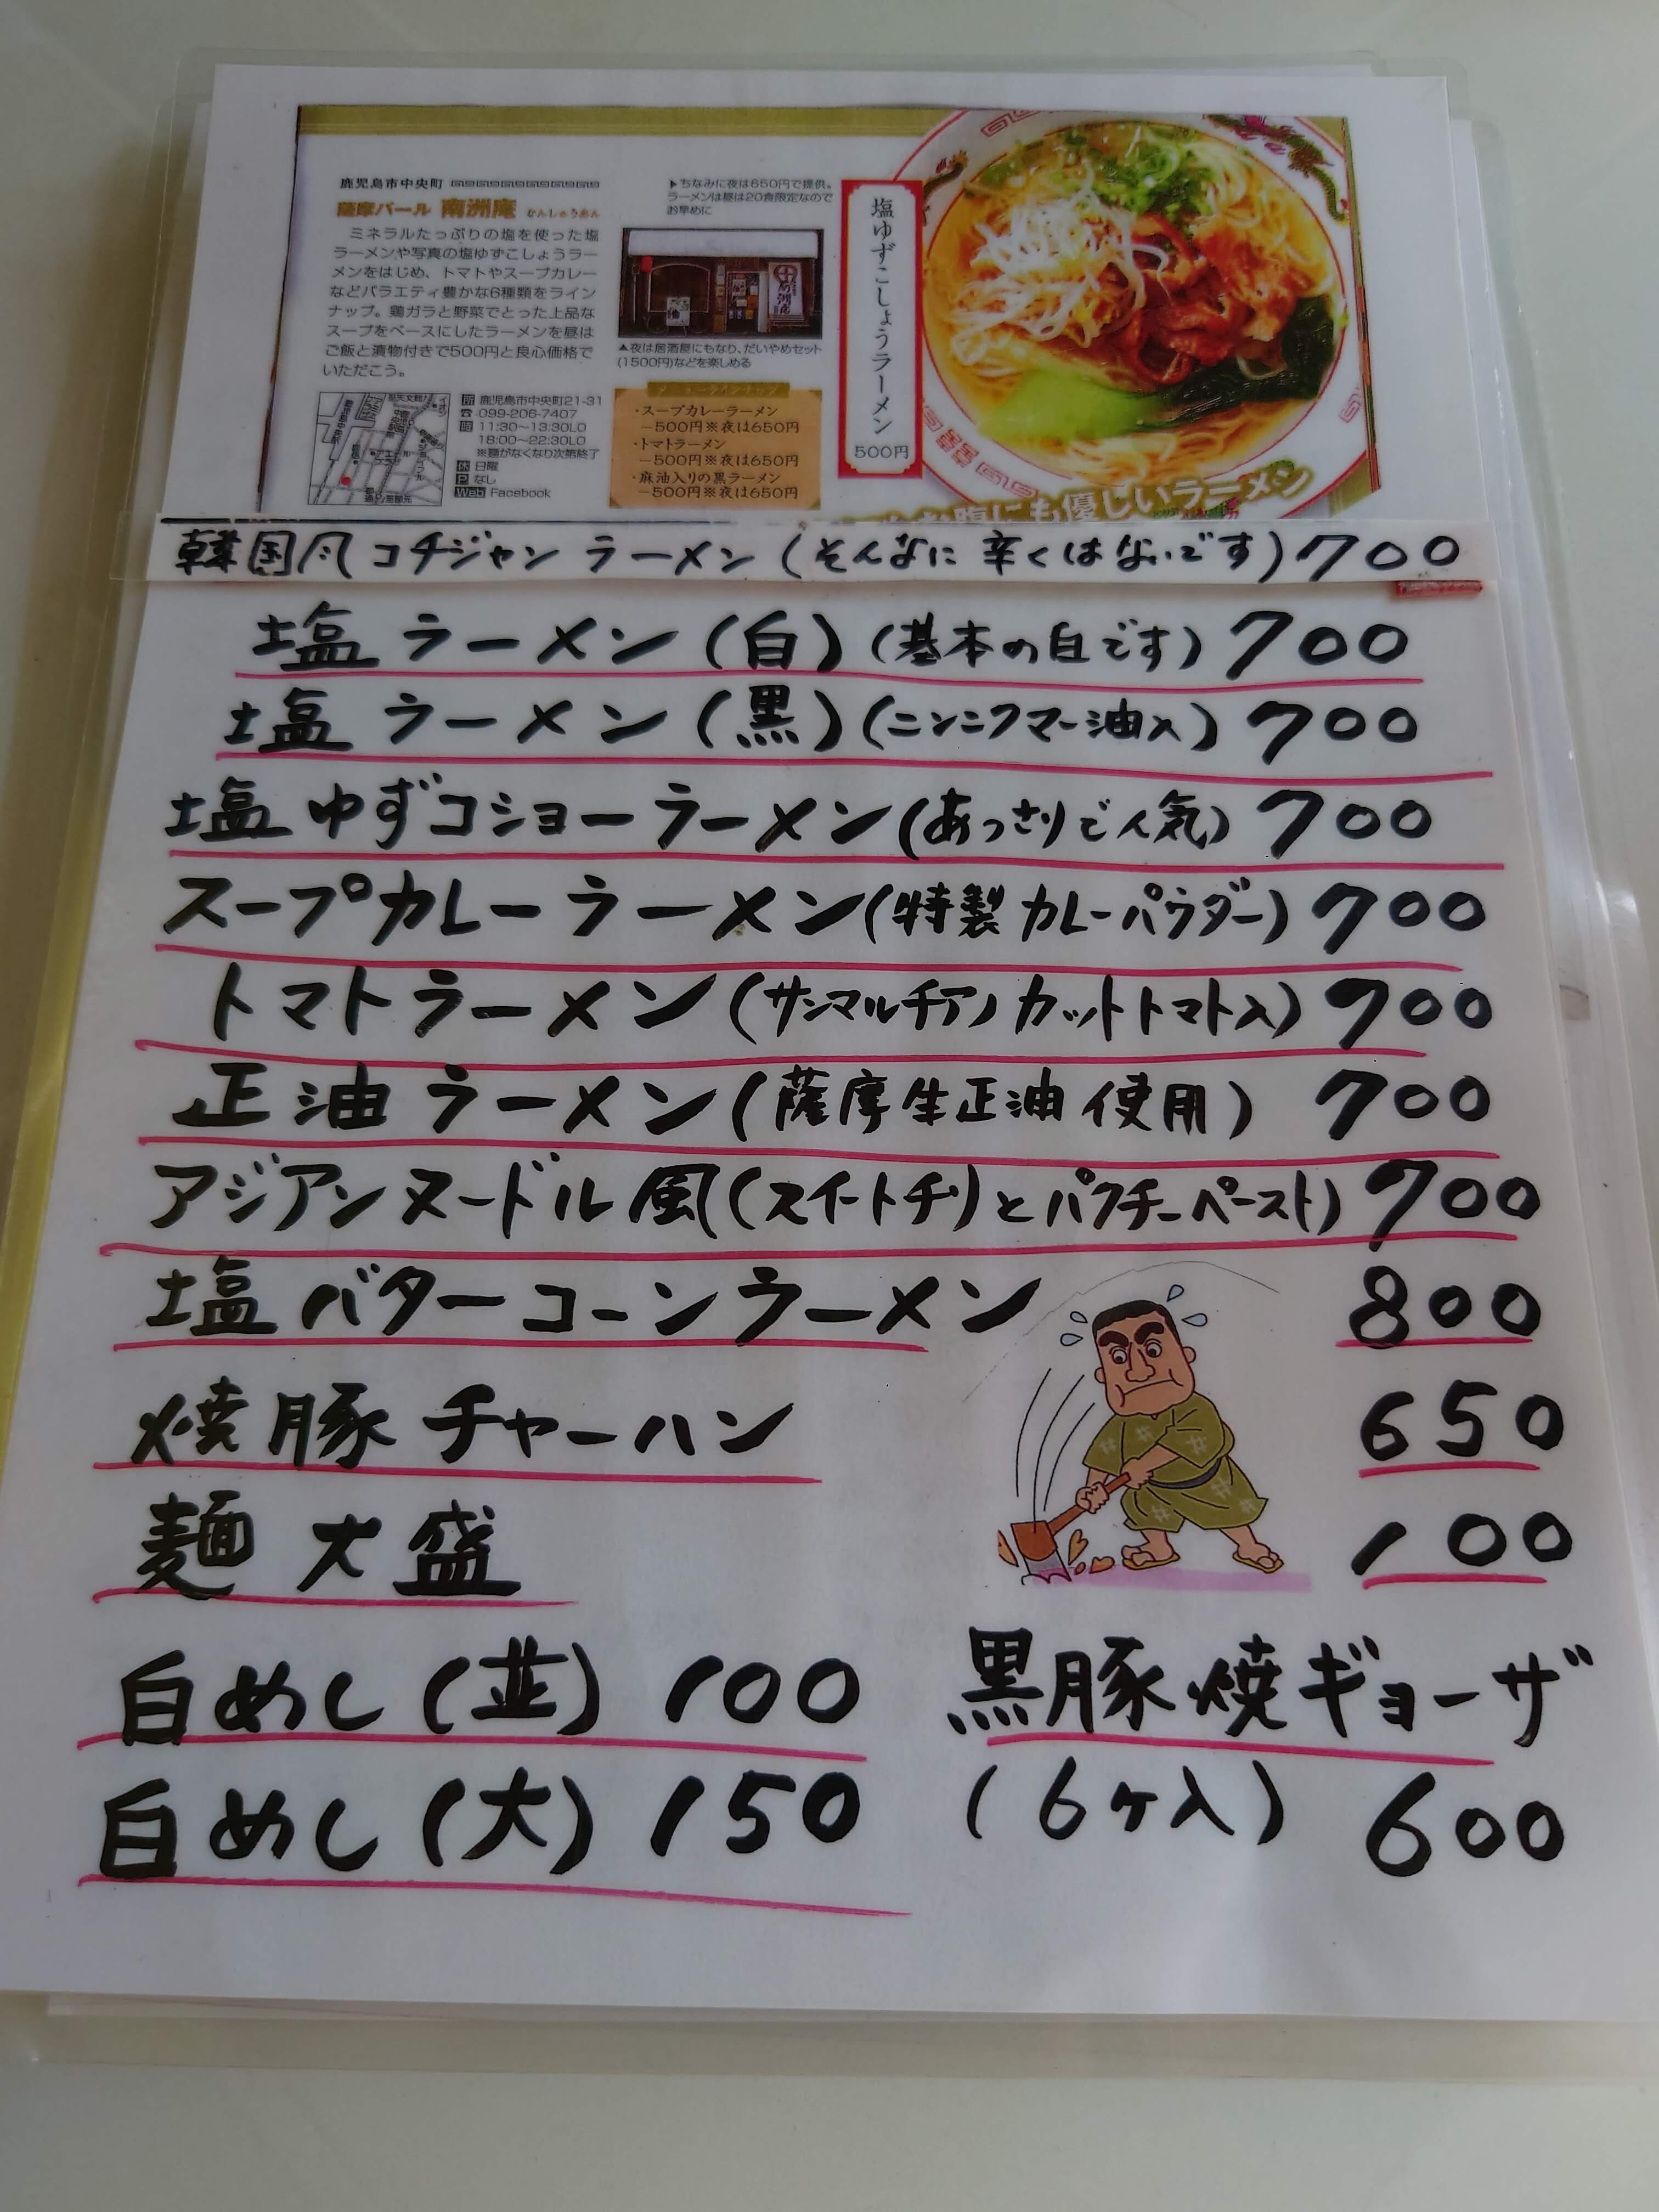 鹿児島市中央町
薩摩バール 南洲庵 なんしゅうあん
ミネラルたっぷりの塩を使った塩
ラーメンや写真の塩ゆずこしょうラー
メンをはじめ、トマトやスープカレー
などバラエティ豊かな6種類をライン
ナップ。鶏ガラと野菜でとった上品な
スープをベースにしたラーメンを昼は
ご飯と漬物付きで500円と良心価格で
いただこう。
▶ちなみに夜は650円で提供。
ラーメンは昼は20食限定なので
お早めに
▲夜は居酒屋にもなり、だいやめセット
(1500円)などを楽しめる
所 鹿児島市中央町21-31
☎ 099-206-7407
時 11:30〜13:30LO
18:00〜22:30LO
※麺がなくなり次第終了
休 日曜
P なし
Web Facebook
メニューラインナップ
・スープカレーラーメン
―500円※夜は650円
・トマトラーメン
―500円※夜は650円
・麻油入りの黒ラーメン
―500円※夜は650円
塩ゆずこしょうラーメン
500円
にも優しいラーメン
韓国風コチジャン ラーメン (そんなに 辛くはないです) 700
塩 ラーメン (白) (基本の白です) 700
塩 ラーメン (黒) (ニンニクマー油入) 700
塩 ゆずコショーラーメン (あっさりで人気) 700
スープカレーラーメン (特製 カレーパウダー) 700
トマトラーメン (サンマルチアノ カットトマト入) 700
正油 ラーメン (薩摩生正油 使用) 700
アジアンヌードル風 (スイートチリとパクチーペースト) 700
塩 バターコーンラーメン 800
焼豚 チャーハン 650
麺 大盛 100
白めし (並) 100
白めし (大) 150
黒豚焼ギョーザ
(6ヶ入) 600